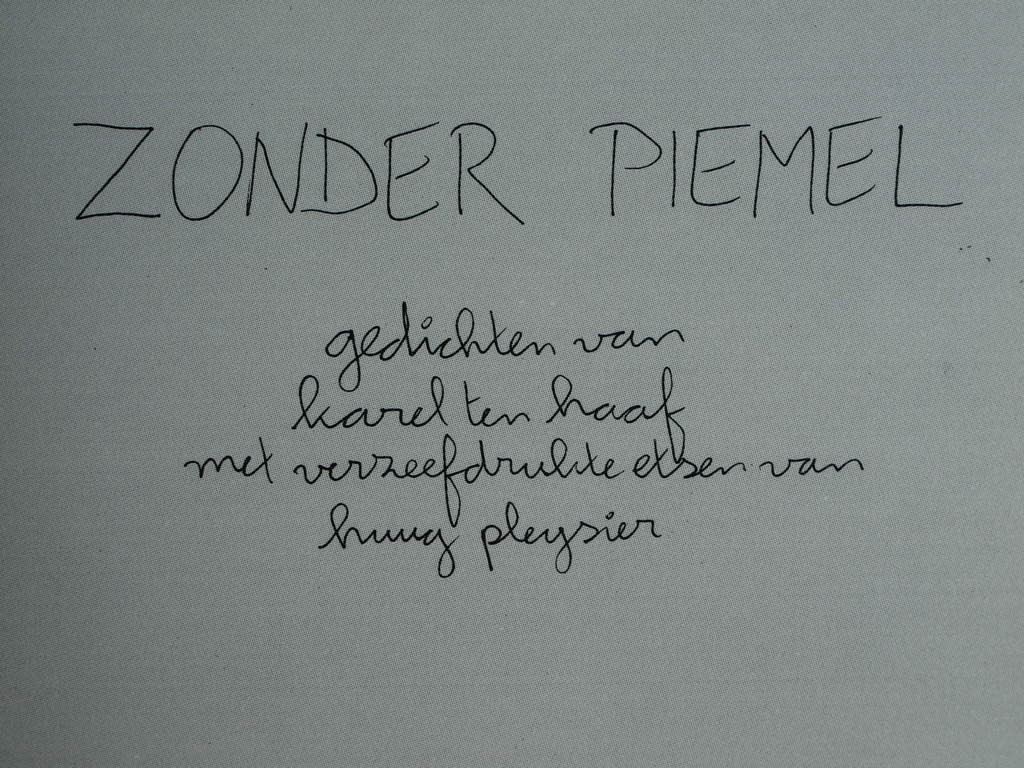 ZONDER PIEMEL
gedichten van
karel ten haaf
met verzeefdrukte etsen van
huug pleysier